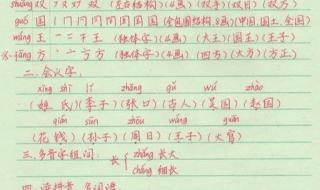 shuāng 双 フ 又 双 双 (左右结构)(4画)(双手)(双目)(双方)
guó 国 丨 冂 冂 冂 国 国 国 (全包围结构,8画)(中国,国土,全国)
wáng 王 一 二 干 王 (独体字)(4画)(大王)(国王)(王子)
fāng 方 丶 亠 亐 方 (独体字)(4画)(四方)(大方)(方正)
二.会认字.
xìng shì lǐ zhāng gǔ wú zhào
(姓 氏)(季子)(张口)(古人)(吴国)(赵国)
qián sūn zhōu wáng guān
(花 钱)(孙子)(周日)(王子)(大官)
三.多音字组词:
长 zhǎng 长大
cháng 细长